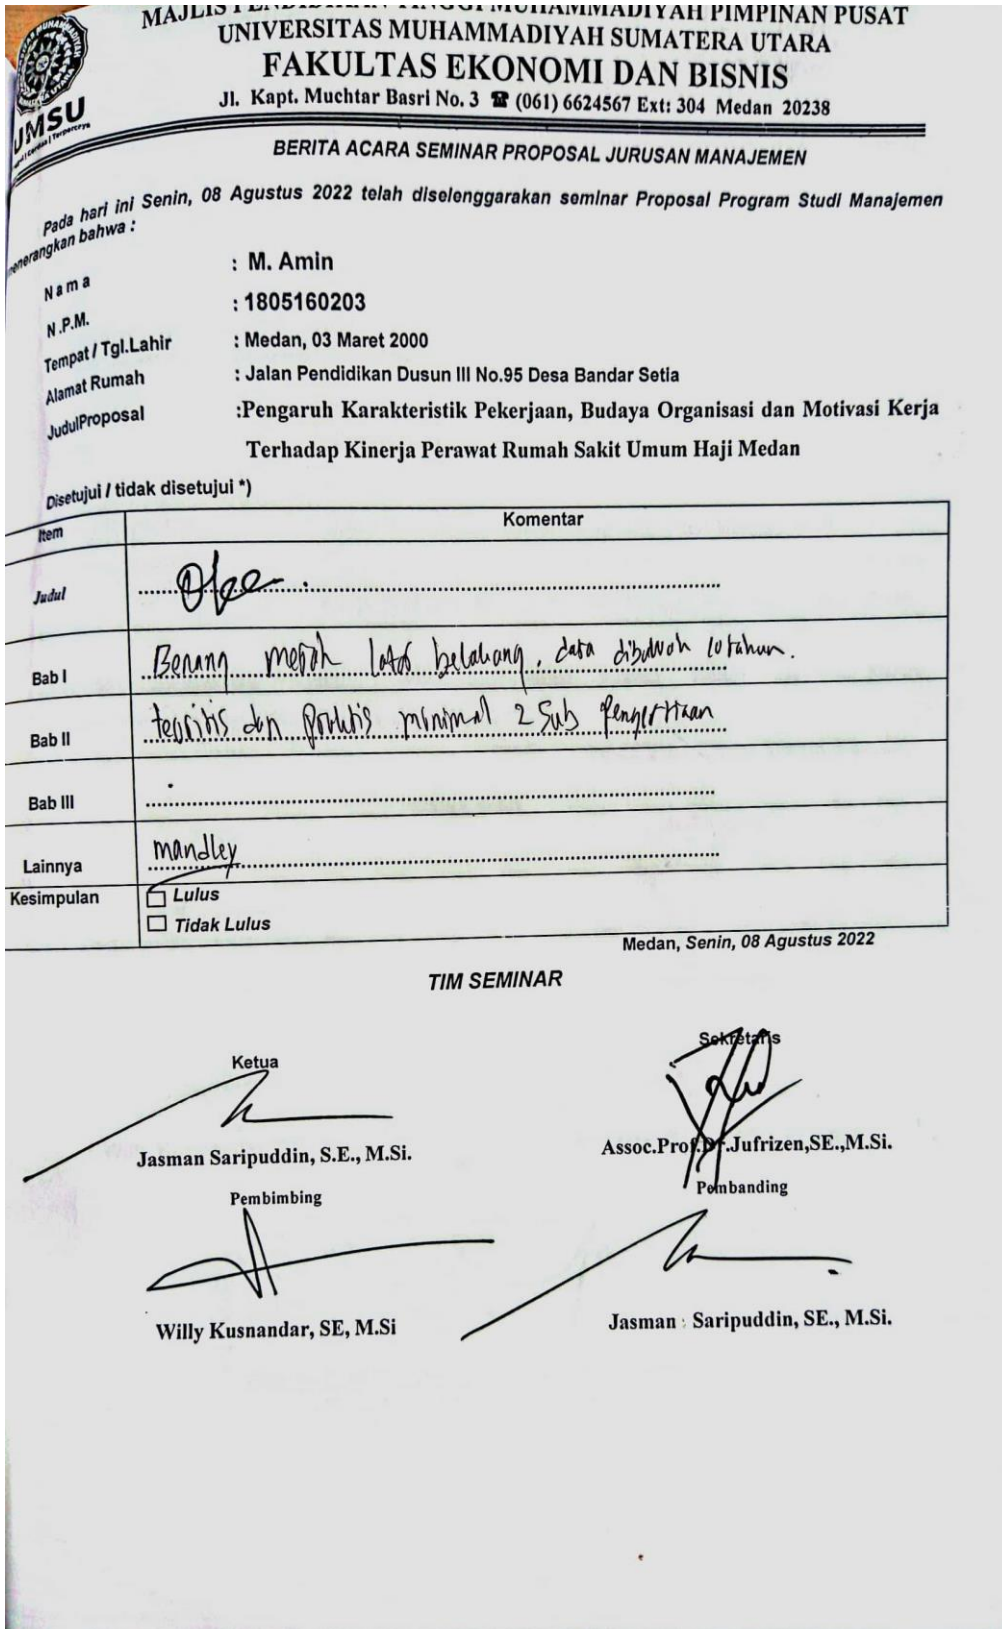 MAJLIS PENDIDIKAN TINGGI MUHAMMADIYAH PIMPINAN PUSAT
UNIVERSITAS MUHAMMADIYAH SUMATERA UTARA
FAKULTAS EKONOMI DAN BISNIS
Jl. Kapt. Muchtar Basri No. 3 ☎ (061) 6624567 Ext: 304 Medan 20238
UMSU
Cerdas | Terpercaya
BERITA ACARA SEMINAR PROPOSAL JURUSAN MANAJEMEN
Pada hari ini Senin, 08 Agustus 2022 telah diselenggarakan seminar Proposal Program Studi Manajemen
menerangkan bahwa :
Nama : M. Amin
N.P.M. : 1805160203
Tempat / Tgl.Lahir : Medan, 03 Maret 2000
Alamat Rumah : Jalan Pendidikan Dusun III No.95 Desa Bandar Setia
JudulProposal :Pengaruh Karakteristik Pekerjaan, Budaya Organisasi dan Motivasi Kerja
Terhadap Kinerja Perawat Rumah Sakit Umum Haji Medan
Disetujui / tidak disetujui *)
Item Komentar
Judul Oke
Bab I Benang merah latar belakang, data dibawah 10 tahun.
Bab II teoritis dan praktis minimal 2 Sub Pengertian
Bab III
Lainnya mandley
Kesimpulan Lulus
Tidak Lulus
Medan, Senin, 08 Agustus 2022
TIM SEMINAR
Ketua Sekretaris
Jasman Saripuddin, S.E., M.Si. Assoc.Prof.Dr.Jufrizen,SE.,M.Si.
Pembimbing Pembanding
Willy Kusnandar, SE, M.Si Jasman : Saripuddin, SE., M.Si.